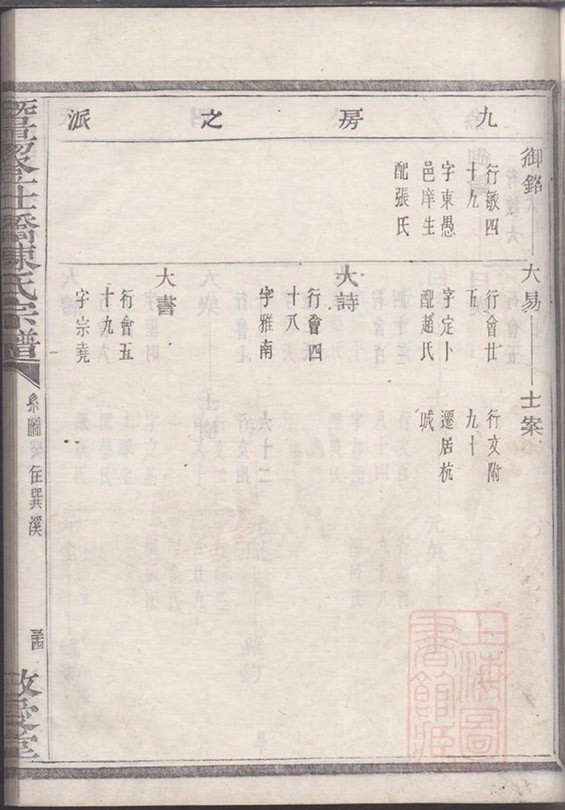 九房之派
御銘
行敏四
十九
字東愚
邑庠生
配張氏
大易
行會廿
五
字定卜
配趙氏
士案
行文附
九十
遷居杭
城
大詩
行會四
十八
字雅南
大書
行會五
十九
字宗堯
暨陽
橋陳氏宗譜
系圖
住巽溪
敬愛堂
上海圖書館藏